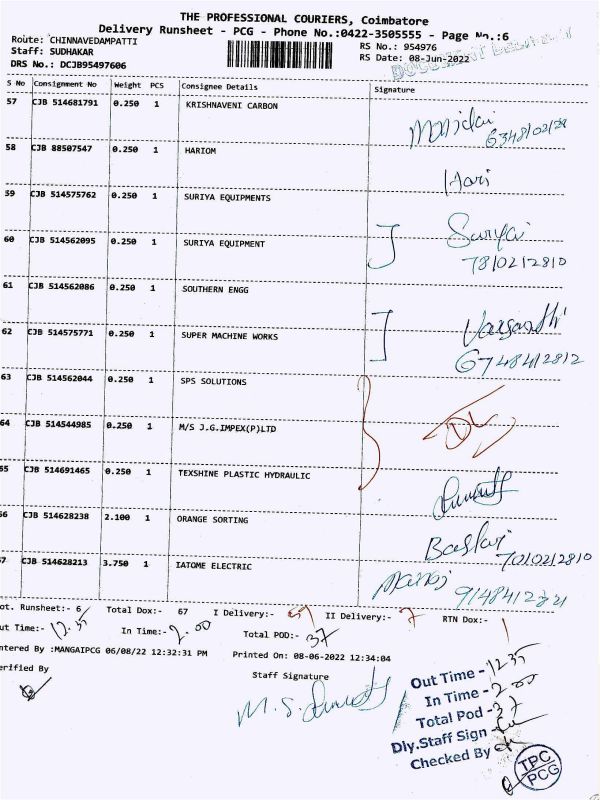 THE PROFESSIONAL COURIERS, Coimbatore
Delivery Runsheet - PCG - Phone No.:0422-3505555 - Page No.:6
Route: CHINNAVEDAMPATTI
Staff: SUDHAKAR
DRS No.: DCJB95497606
RS No.: 954976
RS Date: 08-Jun-2022
S No Consignment No Weight PCS Consignee Details Signature
57 CJB 514681791 0.250 1 KRISHNAVENI CARBON
58 CJB 88507547 0.250 1 HARIOM Hari
59 CJB 514575762 0.250 1 SURIYA EQUIPMENTS Suriya
60 CJB 514562095 0.250 1 SURIYA EQUIPMENT 7810212810
61 CJB 514562086 0.250 1 SOUTHERN ENGG
62 CJB 514575771 0.250 1 SUPER MACHINE WORKS 6748412812
63 CJB 514562044 0.250 1 SPS SOLUTIONS
64 CJB 514544985 0.250 1 M/S J.G.IMPEX(P)LTD DL
65 CJB 514691465 0.250 1 TEXSHINE PLASTIC HYDRAULIC
66 CJB 514628238 2.100 1 ORANGE SORTING 7010212810
67 CJB 514628213 3.750 1 IATOME ELECTRIC Manoj
ot. Runsheet:- 6 Total Dox:- 67 I Delivery:- 59 II Delivery:- 7 RTN Dox:- 1
ut Time:- 12.35 In Time:- 2.00 Total POD:- 37
ntered By :MANGAIPCG 06/08/22 12:32:31 PM Printed On: 08-06-2022 12:34:04
erified By
Staff Signature
Out Time - 12 35
In Time - 2 00
Total Pod - 37
Dly.Staff Sign -
Checked By
TPC
PCG